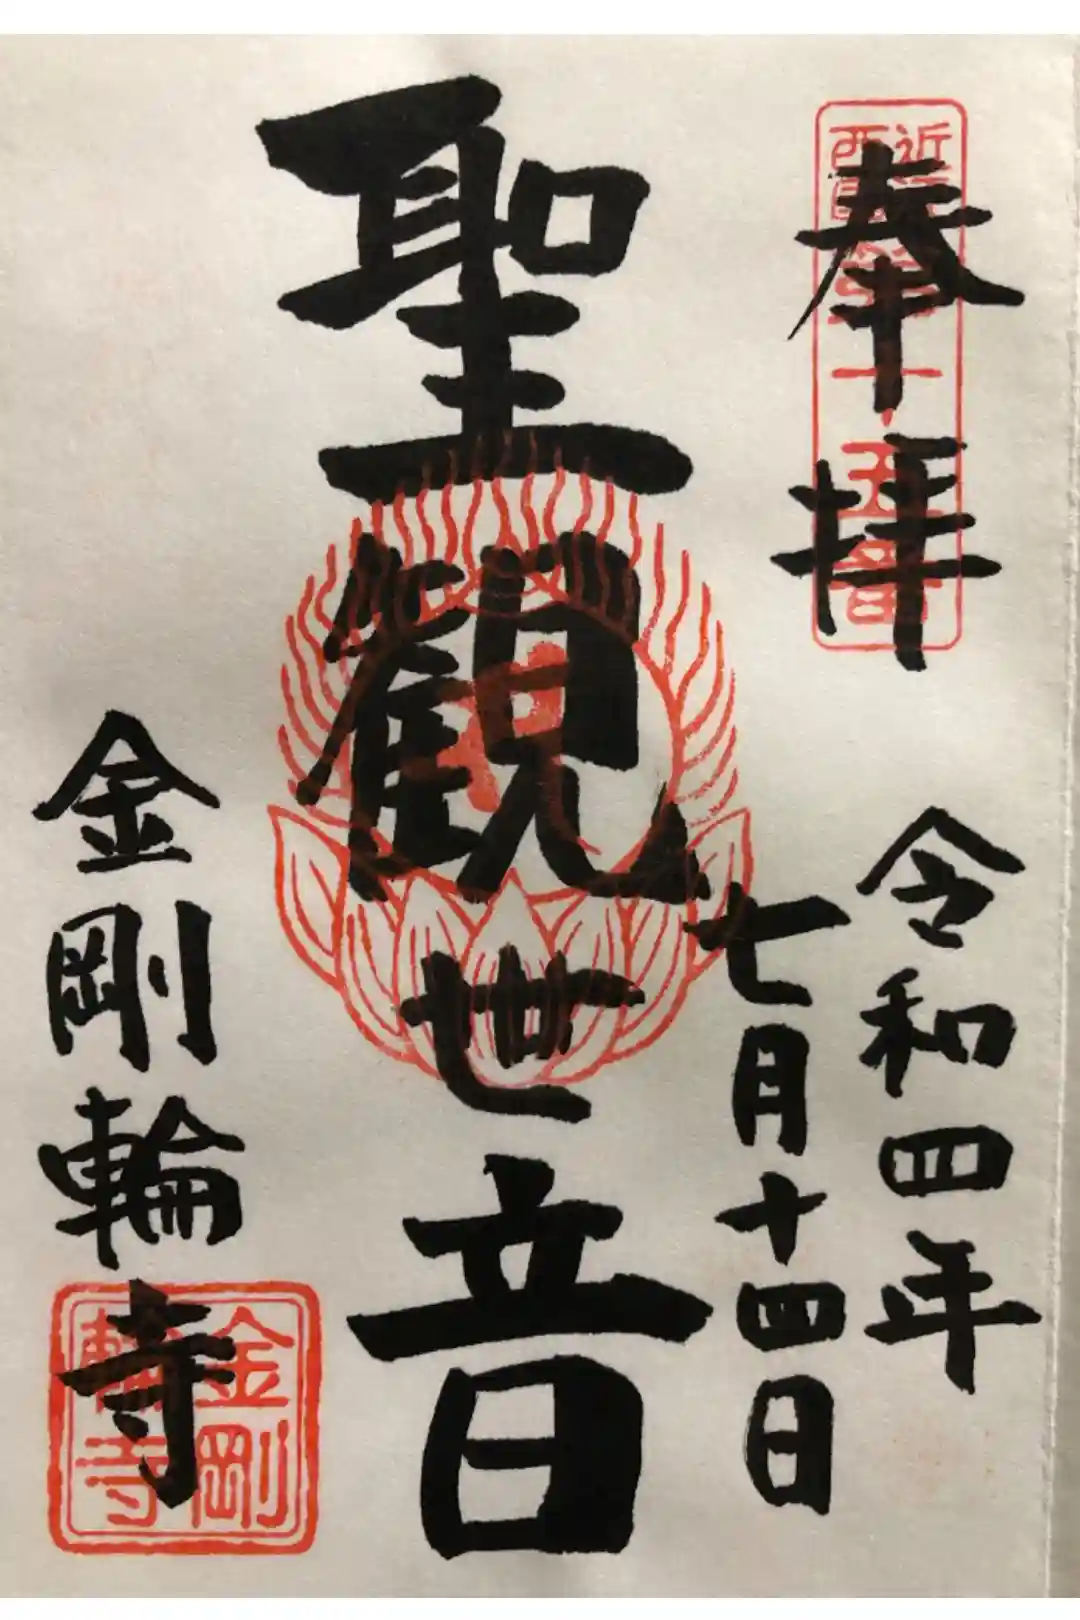 奉拝
近江西国第十五番
令和四年
七月十四日
聖観世音
金剛輪寺
金剛輪寺